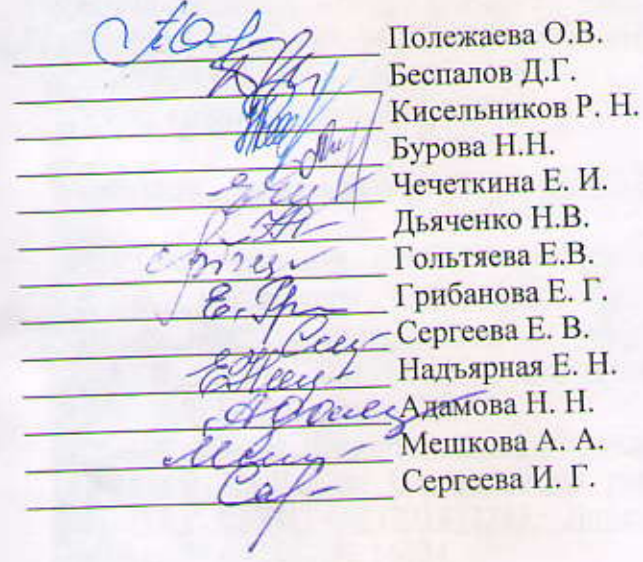 Полежаева О.В.
Беспалов Д.Г.
Кисельников Р. Н.
Бурова Н.Н.
Чечеткина Е. И.
Дьяченко Н.В.
Гольтяева Е.В.
Грибанова Е. Г.
Сергеева Е. В.
Надъярная Е. Н.
Адамова Н. Н.
Мешкова А. А.
Сергеева И. Г.